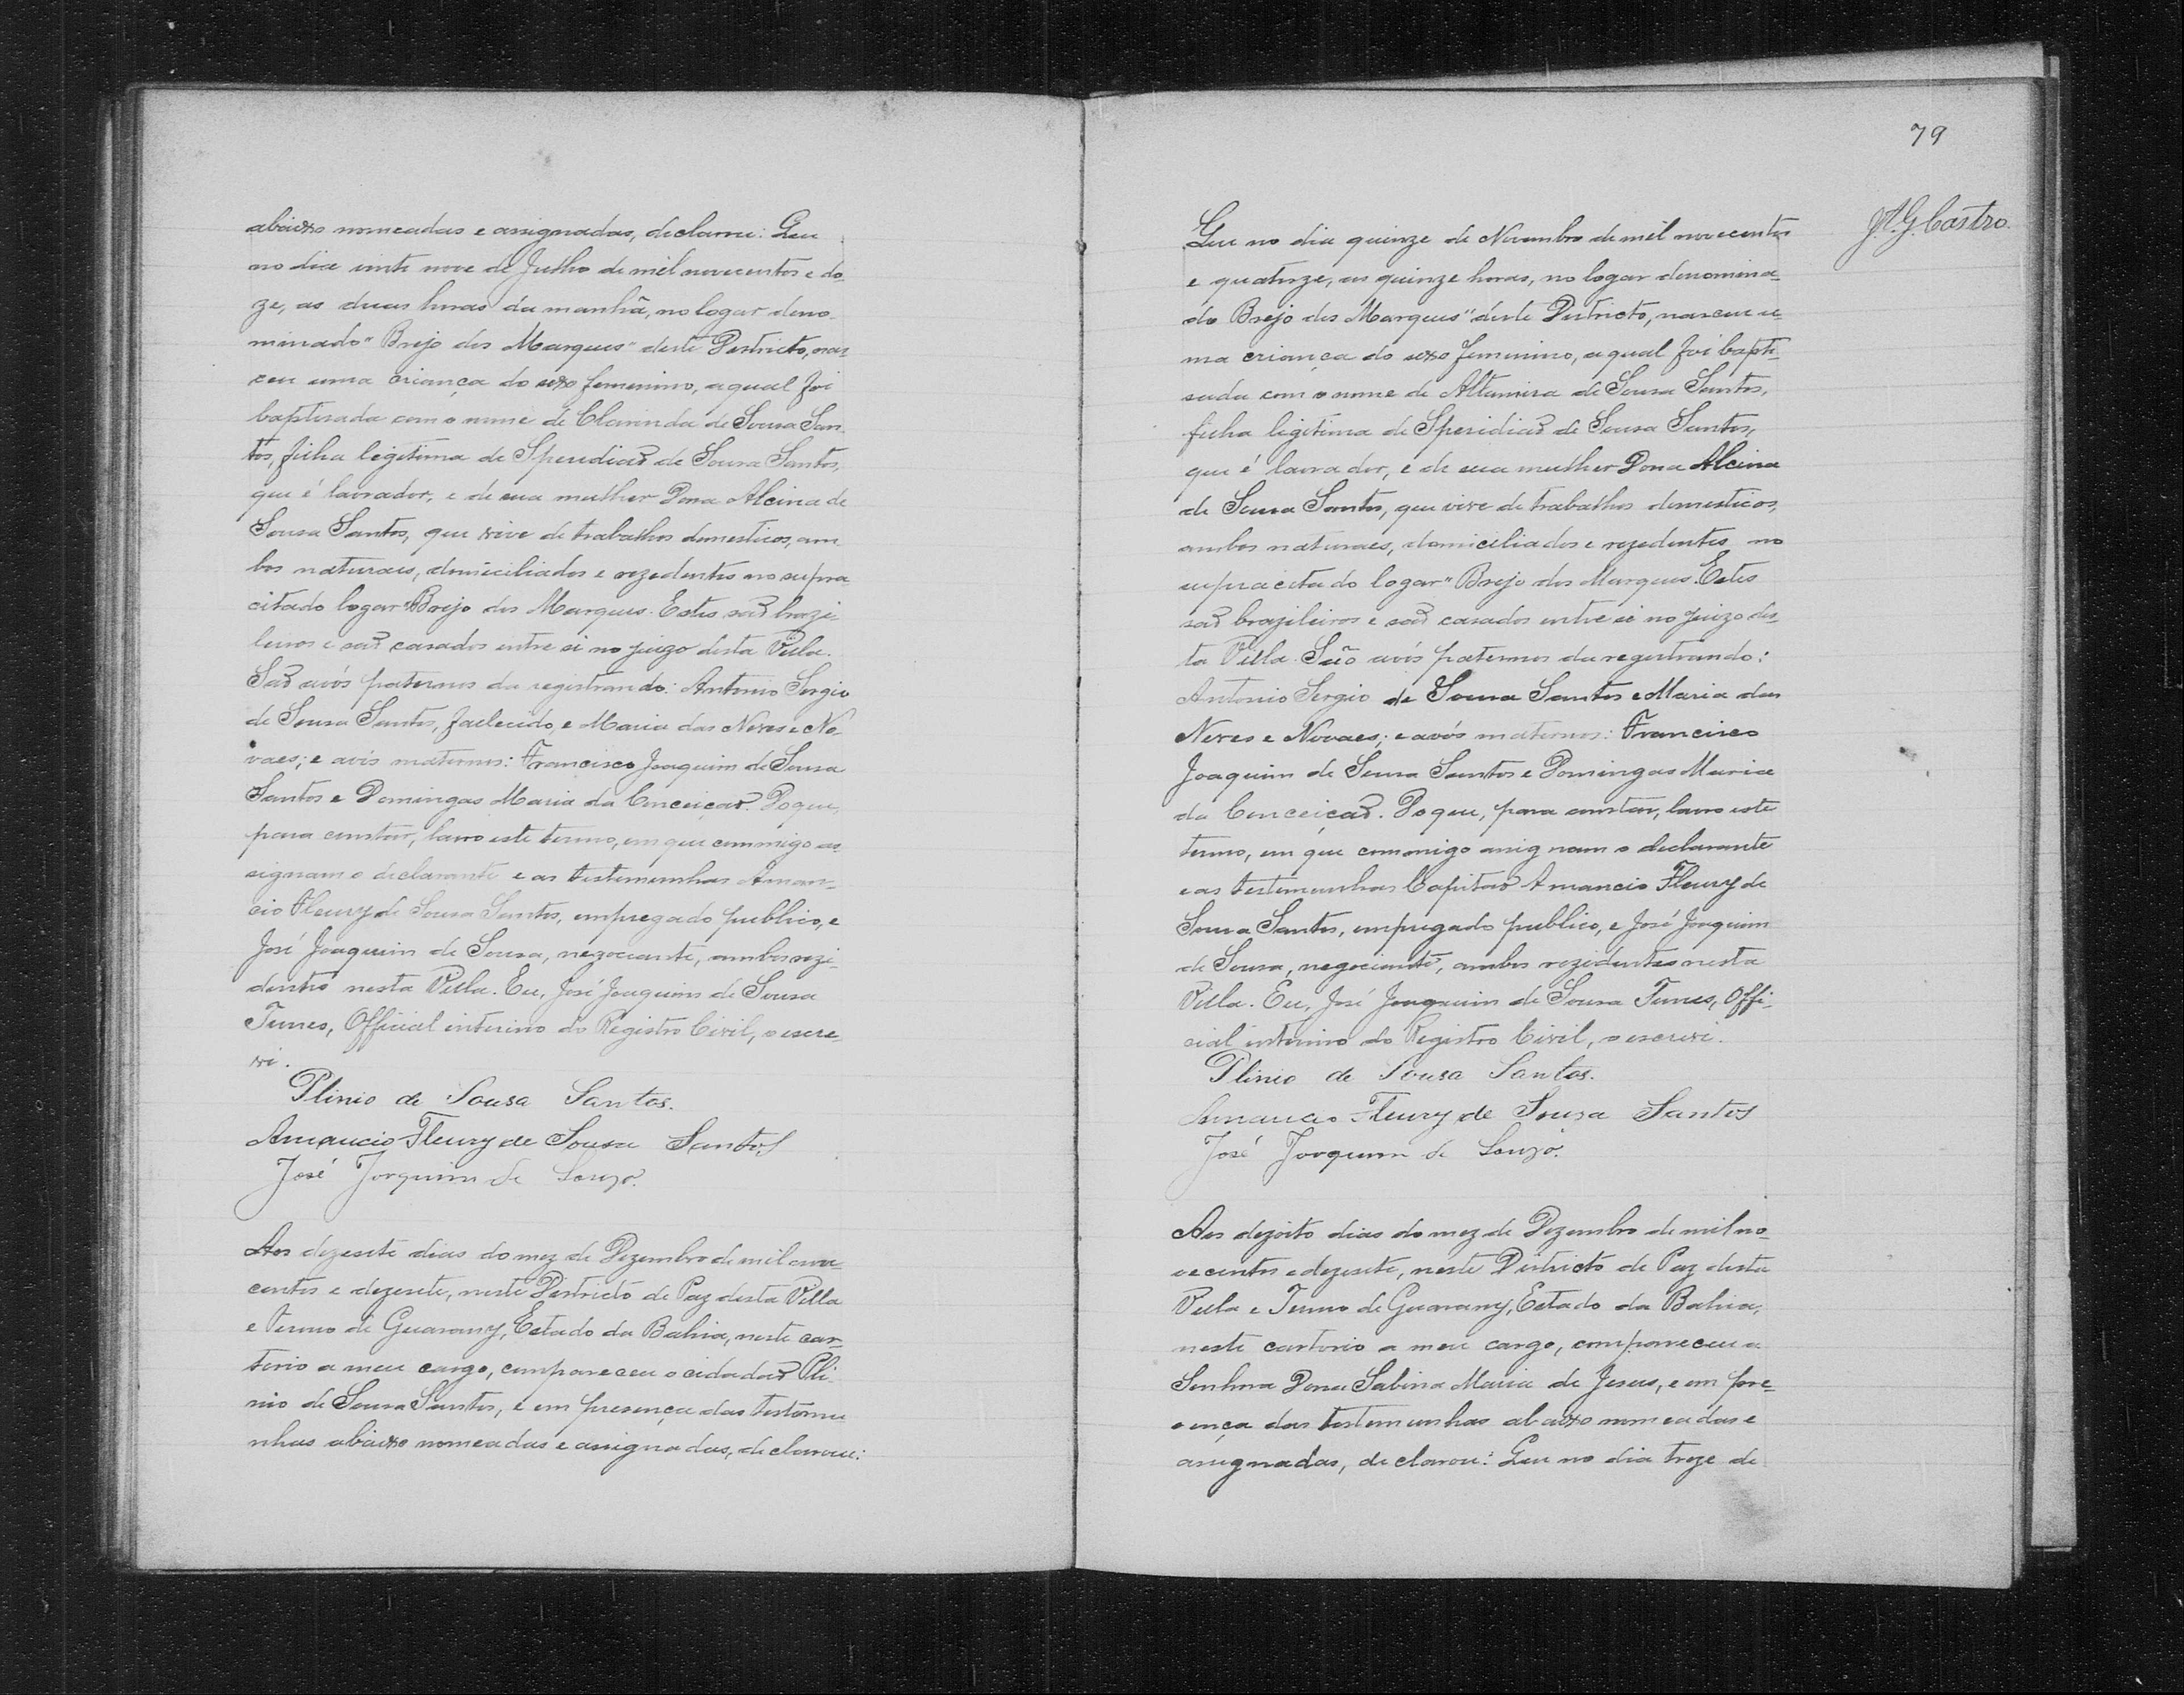 abaixo nomeadas e assignadas, declarou: Que
no dia vinte nove de Julho de mil novecentos e do-
ze, as duas horas da manhã, no logar deno-
minado "Brejo dos Marques" deste Districto, nas-
ceu uma criança do sexo femenino, a qual foi
baptisada com o nome de Clarinda de Sousa San-
tos, filha legitima de Speridiaõ de Sousa Santos,
que é lavrador, e de sua mulher Dona Alcina de
Sousa Santos, que vive de trabalhos domesticos, am-
bos naturaes, domiciliados e rezedentes no supra
citado logar "Brejo dos Marques. Estes saõ brazi-
leiros e saõ casados entre si no juizo desta Villa.
Saõ avós paternos da registrando: Antonio Sergio
de Sousa Santos, fallecido, e Maria das Neves e No-
vaes; e avós maternos: Francisco Joaquim de Sousa
Santos e Domingas Maria da Conceiçaõ. Do que,
para constar, lavro este termo, em que commigo as-
signam o declarante e as testemunhas Aman-
cio Fleury de Sousa Santos, empregado publico, e
José Joaquim de Sousa, negociante, ambos rezi-
dentes nesta Villa. Eu, José Joaquim de Sousa
Tunes, Official interino do Registro Civil, o escre-
vi.
Plinio de Sousa Santos.
Amancio Fleury de Sousa Santos
José Joaquim de Souza.
Aos dezesete dias do mez de Dezembro de mil nove-
centos e dezesete, neste Districto de Paz desta Villa
e Termo de Guarany, Estado da Bahia, neste car-
torio a meu cargo, compareceu o cidadaõ Pli-
nio de Sousa Santos, e em presença das testemu-
nhas abaixo nomeadas e assignadas, declarou:
79
J. A. G. Castro.
Que no dia quinze de Novembro de mil novecentos
e quatorze, as quinze horas, no logar denomina-
do Brejo dos Marques" deste Districto, nasceu u-
ma criança do sexo femenino, a qual foi bapti-
sada com o nome de Altamira de Sousa Santos,
filha legitima de Speridiaõ de Sousa Santos,
que é lavrador, e de sua mulher Dona Alcina
de Sousa Santos, que vive de trabalhos domesticos,
ambos naturaes, domiciliados e rezedentes no
supracitado logar "Brejo dos Marques. Estes
saõ brazileiros e saõ casados entre si no juizo des-
ta Villa. São avós paternos da registrando:
Antonio Sergio de Sousa Santos e Maria das
Neves e Novaes; e avós maternos: Francisco
Joaquim de Sousa Santos e Domingas Maria
da Conceiçaõ. Do que, para constar, lavro este
termo, em que commigo assignam o declarante
e as testemunhas Capitaõ Amancio Fleury de
Sousa Santos, empregado publico, e José Joaquim
de Sousa, negociante, ambos rezidentes nesta
Villa. Eu, José Joaquim de Sousa Tunes, Offi-
cial interino do Registro Civil, o escrevi.
Plinio de Sousa Santos.
Amancio Fleury de Sousa Santos
José Joaquim de Souza.
Aos dezoito dias do mez de Dezembro de mil no-
vecentos e dezesete, neste Districto de Paz desta
Villa e Termo de Guarany, Estado da Bahia,
neste cartorio a meu cargo, compareceu a
Senhora Dona Sabina Maria de Jesus, e em pre-
sença das testemunhas abaixo nomeadas e
assignadas, declarou: Que no dia treze de